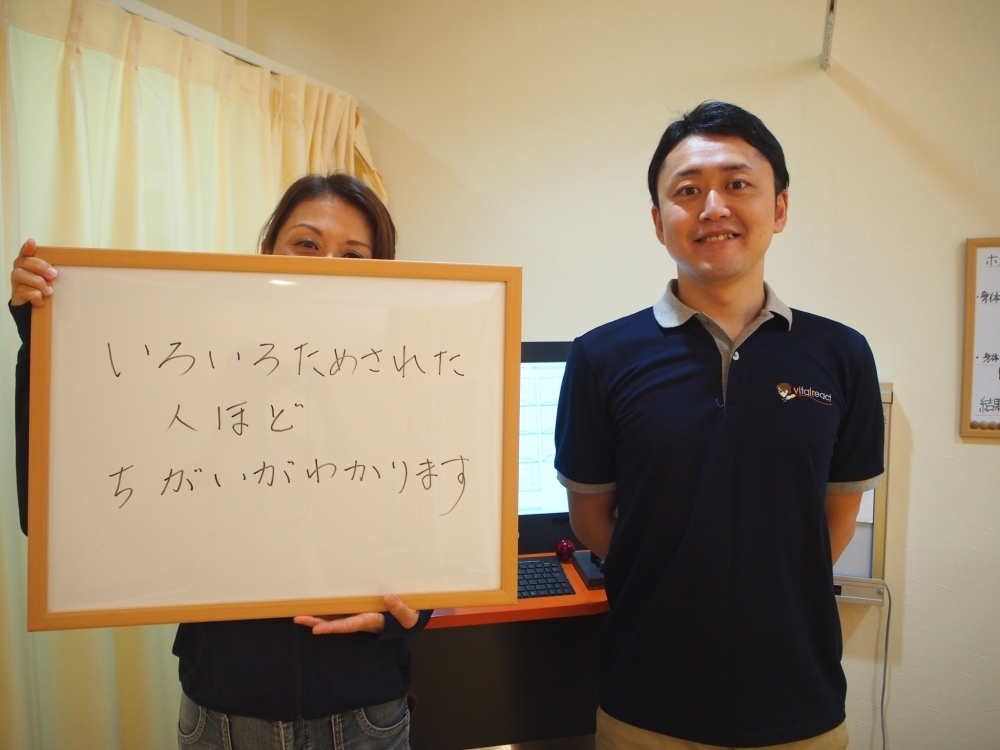 いろいろためされた
人ほど
ちがいがわかります
vitalreact
ホ
・身体
・身体
結果